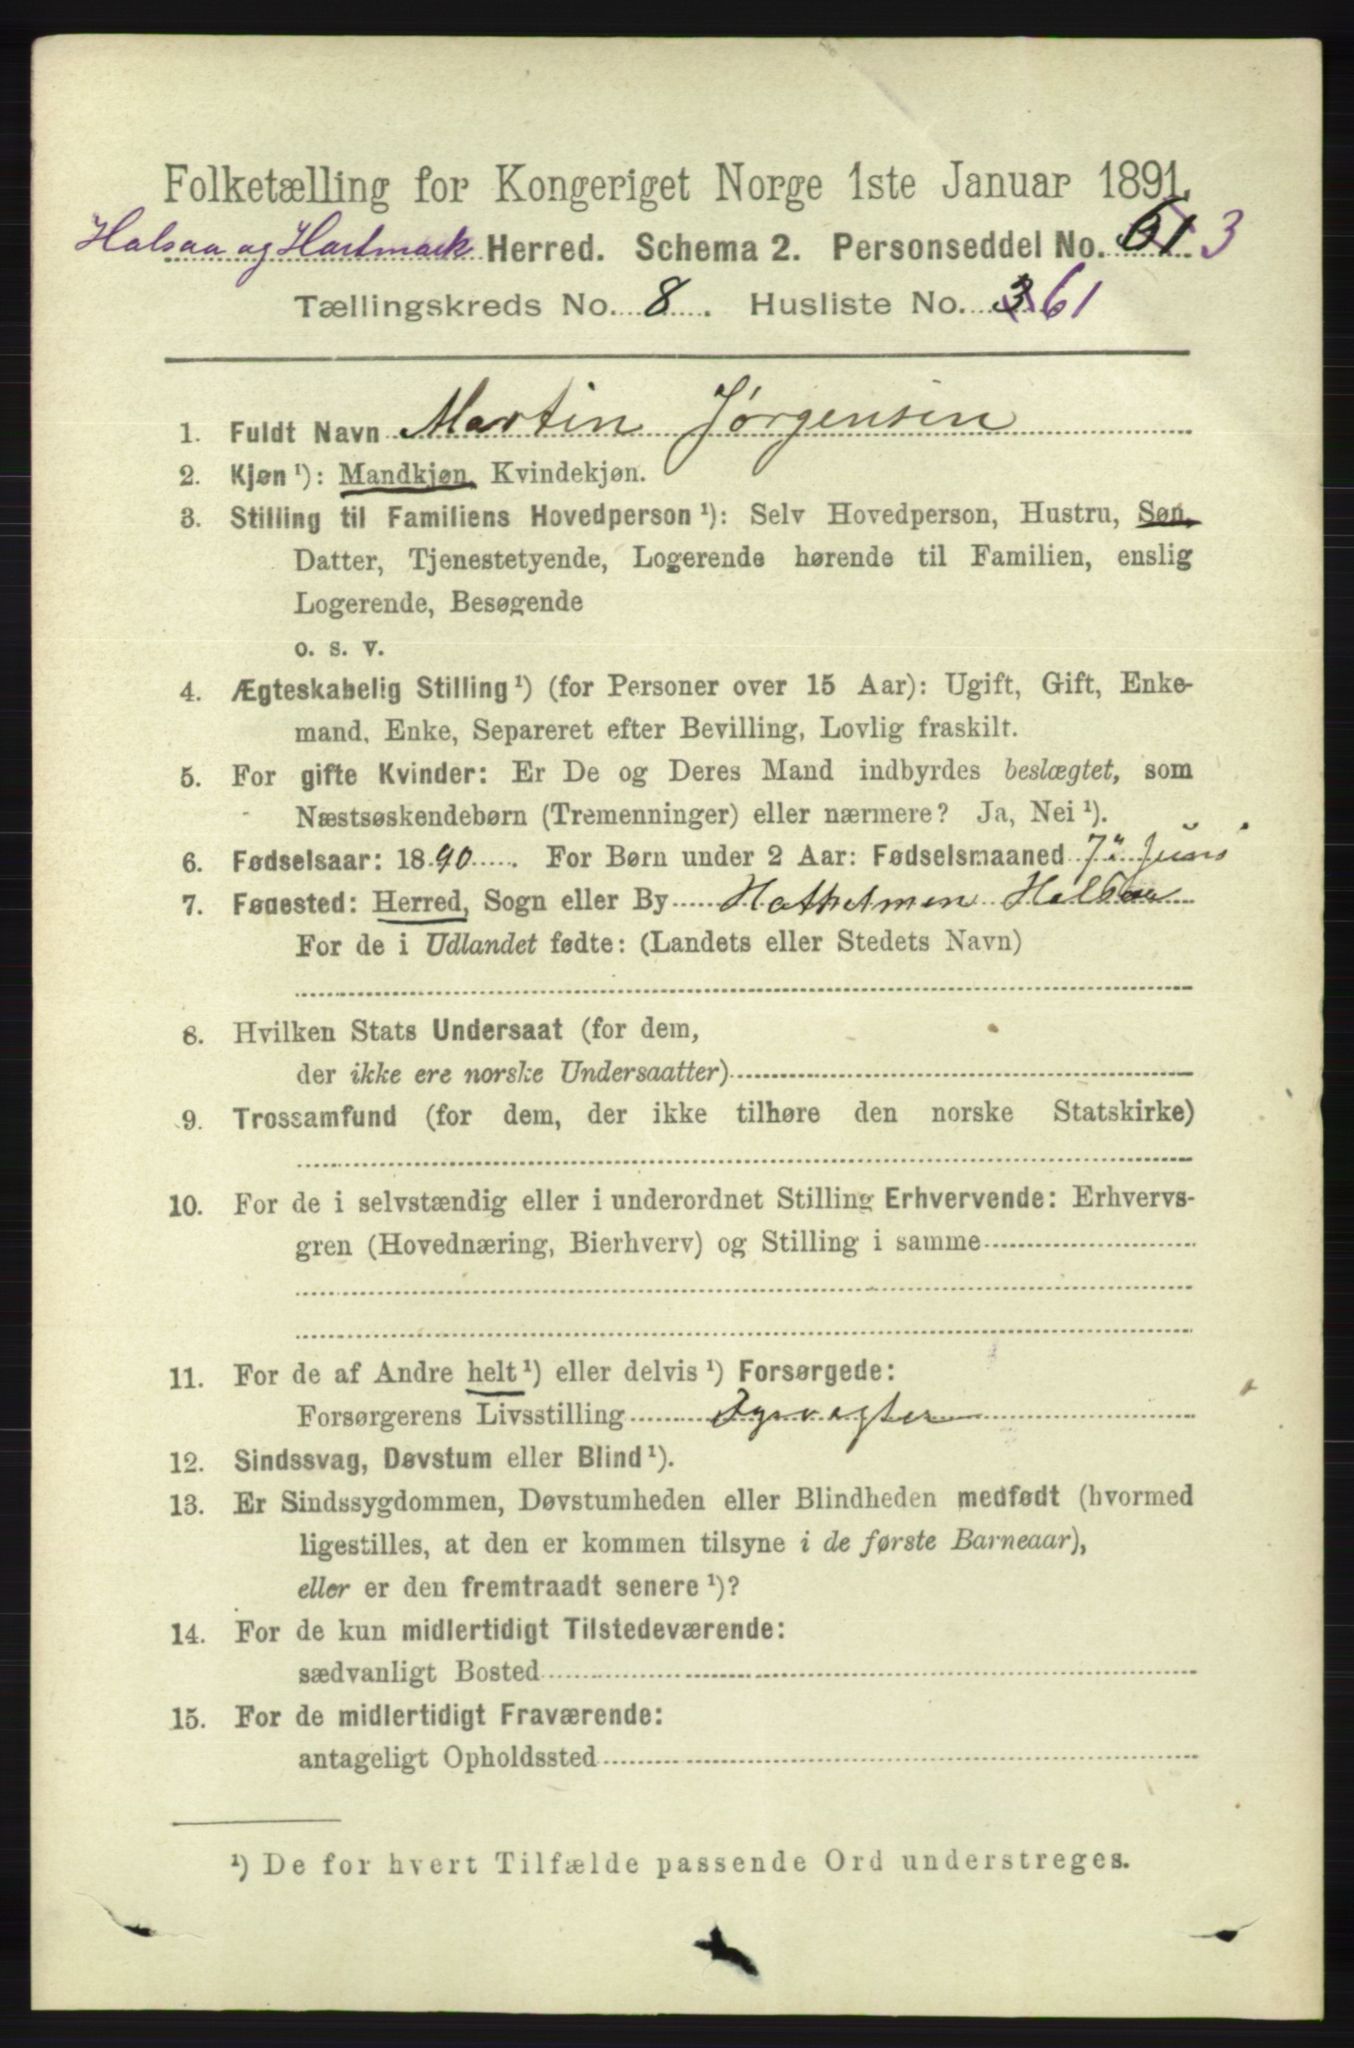 Folketælling for Kongeriget Norge 1ste Januar 1891.
Halsaa og Hartmark Herred. Schema 2. Personseddel No. 61 3
Tællingskreds No. 8. Husliste No. 3 61
1. Fuldt Navn Martin Jørgensen
2. Kjøn ¹): Mandkjøn, Kvindekjøn.
3. Stilling til Familiens Hovedperson ¹): Selv Hovedperson, Hustru, Søn,
Datter, Tjenestetyende, Logerende hørende til Familien, enslig
Logerende, Besøgende
o. s. v.
4. Ægteskabelig Stilling ¹) (for Personer over 15 Aar): Ugift, Gift, Enke-
mand, Enke, Separeret efter Bevilling, Lovlig fraskilt.
5. For gifte Kvinder: Er De og Deres Mand indbyrdes beslægtet, som
Næstsøskendebørn (Tremenninger) eller nærmere? Ja, Nei ¹).
6. Fødselsaar: 1890. For Børn under 2 Aar: Fødselsmaaned 7de Juni
7. Fødested: Herred, Sogn eller By Halsaa
For de i Udlandet fødte: (Landets eller Stedets Navn)
8. Hvilken Stats Undersaat (for dem,
der ikke ere norske Undersaatter)
9. Trossamfund (for dem, der ikke tilhøre den norske Statskirke)
10. For de i selvstændig eller i underordnet Stilling Erhvervende: Erhvervs-
gren (Hovednæring, Bierhverv) og Stilling i samme
11. For de af Andre helt ¹) eller delvis ¹) Forsørgede:
Forsørgerens Livsstilling Fyrvogter
12. Sindssvag, Døvstum eller Blind ¹).
13. Er Sindssygdommen, Døvstumheden eller Blindheden medfødt (hvormed
ligestilles, at den er kommen tilsyne i de første Barneaar),
eller er den fremtraadt senere ¹)?
14. For de kun midlertidigt Tilstedeværende:
sædvanligt Bosted
15. For de midlertidigt Fraværende:
antageligt Opholdssted
¹) De for hvert Tilfælde passende Ord understreges.